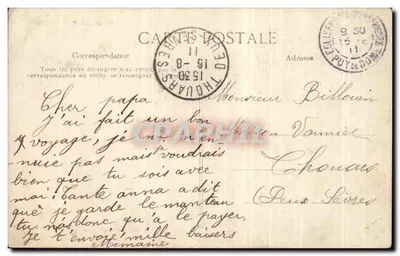 CARTE POSTALE
Correspondance
Adresse
Tous les pays étrangers n'acceptent
correspondance au recto, se renseigner
THOUARS
DEUX SÈVRES
15 30
16 - 8
11
9 30
11
PUY-DE-DOME
Cher papa
J'ai fait un bon
voyage, je
nuie pas mais voudrais
bien que tu sois avec
moi. Tante anna a dit
que je garde le manteau
tu n'as donc qu'a le payer,
Je t'envoie mille baisers
Germaine
Monsieur Billouin
Vannier
Thouars
(Deux-Sèvres)